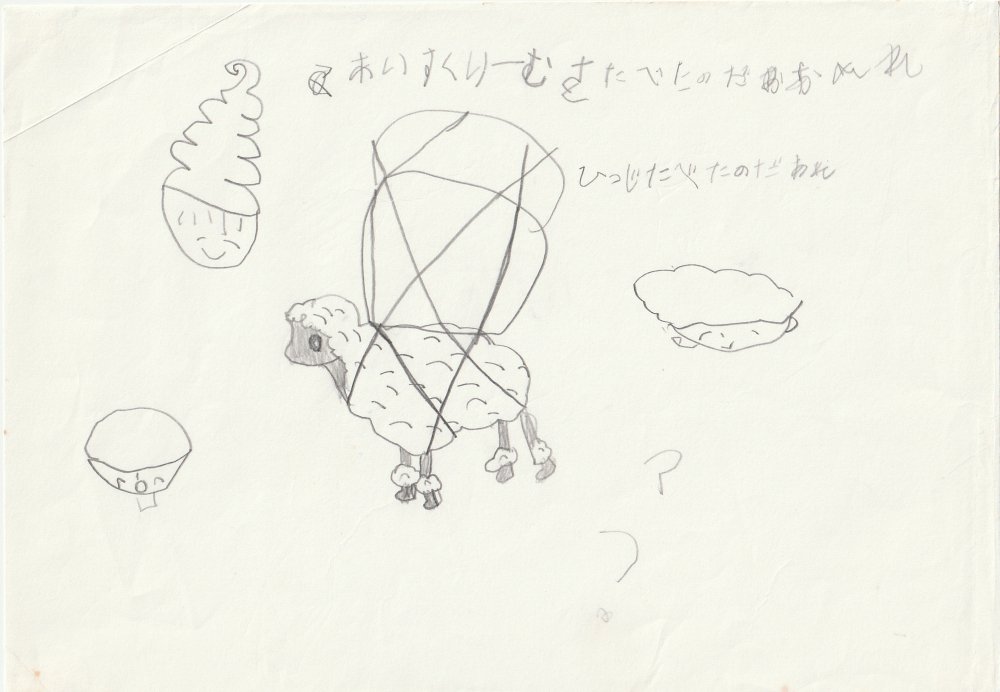 あいすくりーむをたべたのだあおあれ
ひつじたべたのだあれ
?